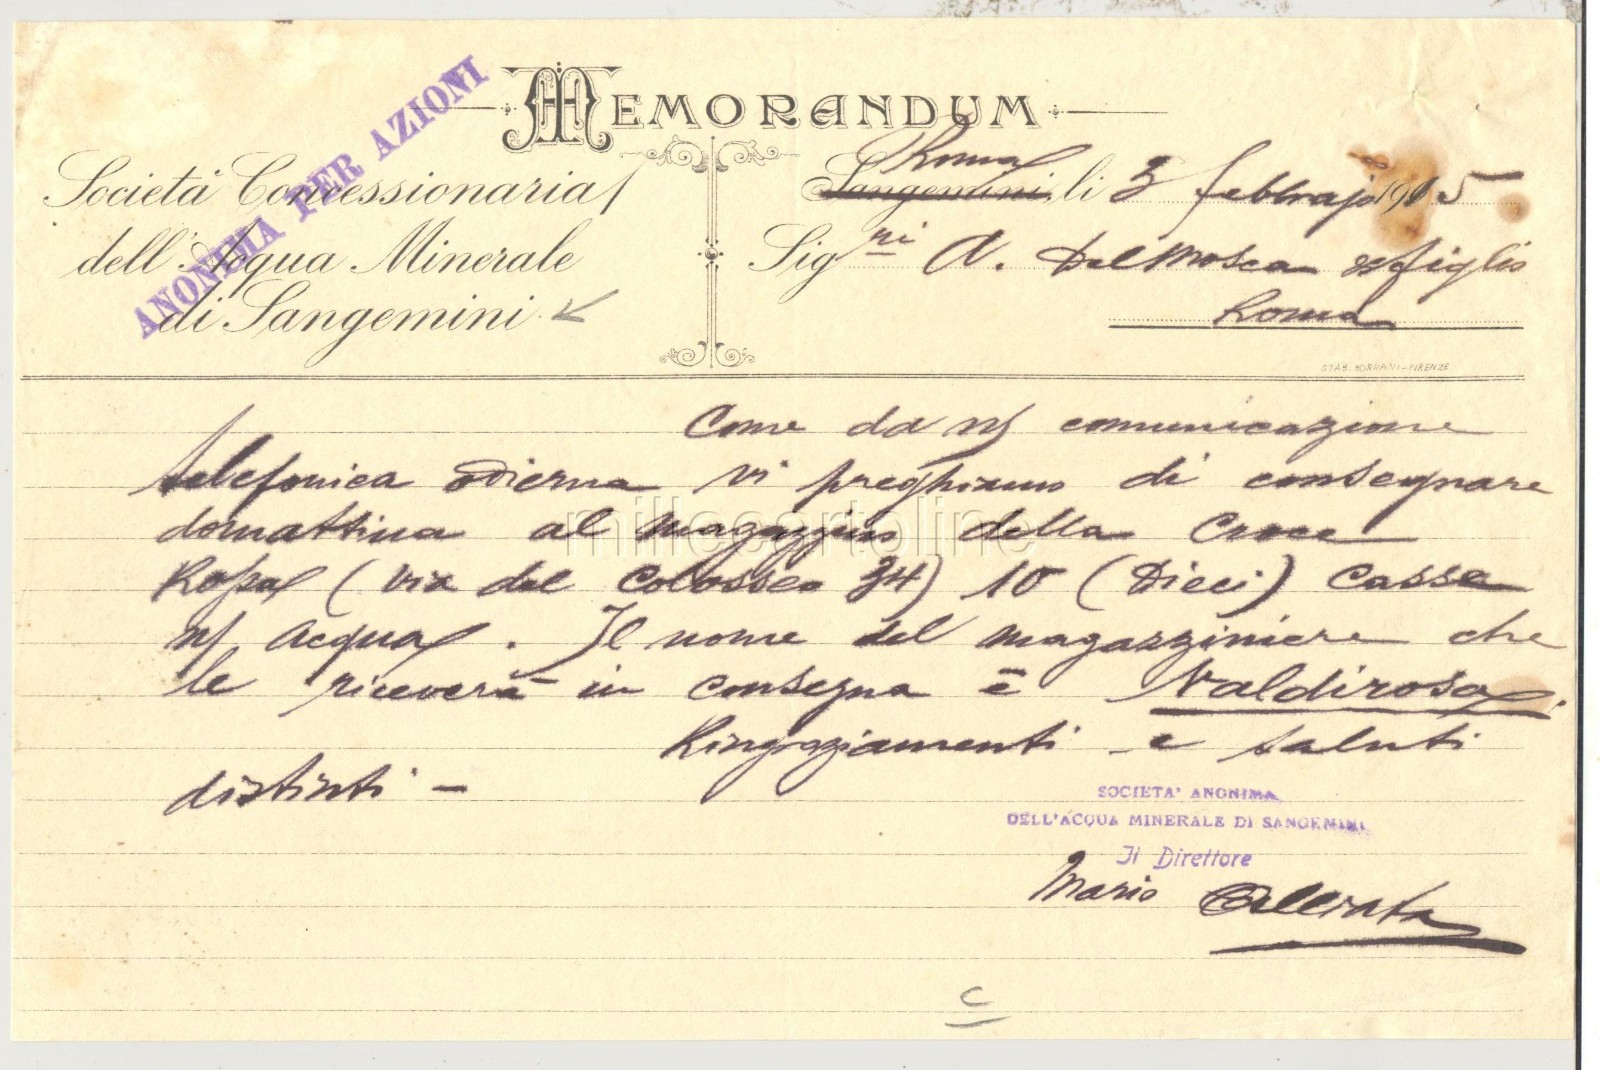 MEMORANDUM
ANONIMA PER AZIONI
Società Concessionaria
dell'Acqua Minerale
di Sangemini
Roma
Sangemini, li 3 febbrajo 1915
Sig ri A. Dal Mosca & figlio
Roma
STAB. BORRANI-FIRENZE
Come da n/ comunicazione
telefonica odierna vi preghiamo di consegnare
domattina al magazzino della Croce
Rossa (via del Colosseo 34) 10 (Dieci) Casse
n/ Acqua. Il nome del magazziniere che
le riceverà in consegna è Valdirosa.
Ringraziamenti e saluti
distinti -
millecartoline
SOCIETA' ANONIMA
DELL'ACQUA MINERALE DI SANGEMINI
Il Direttore
Mario
C